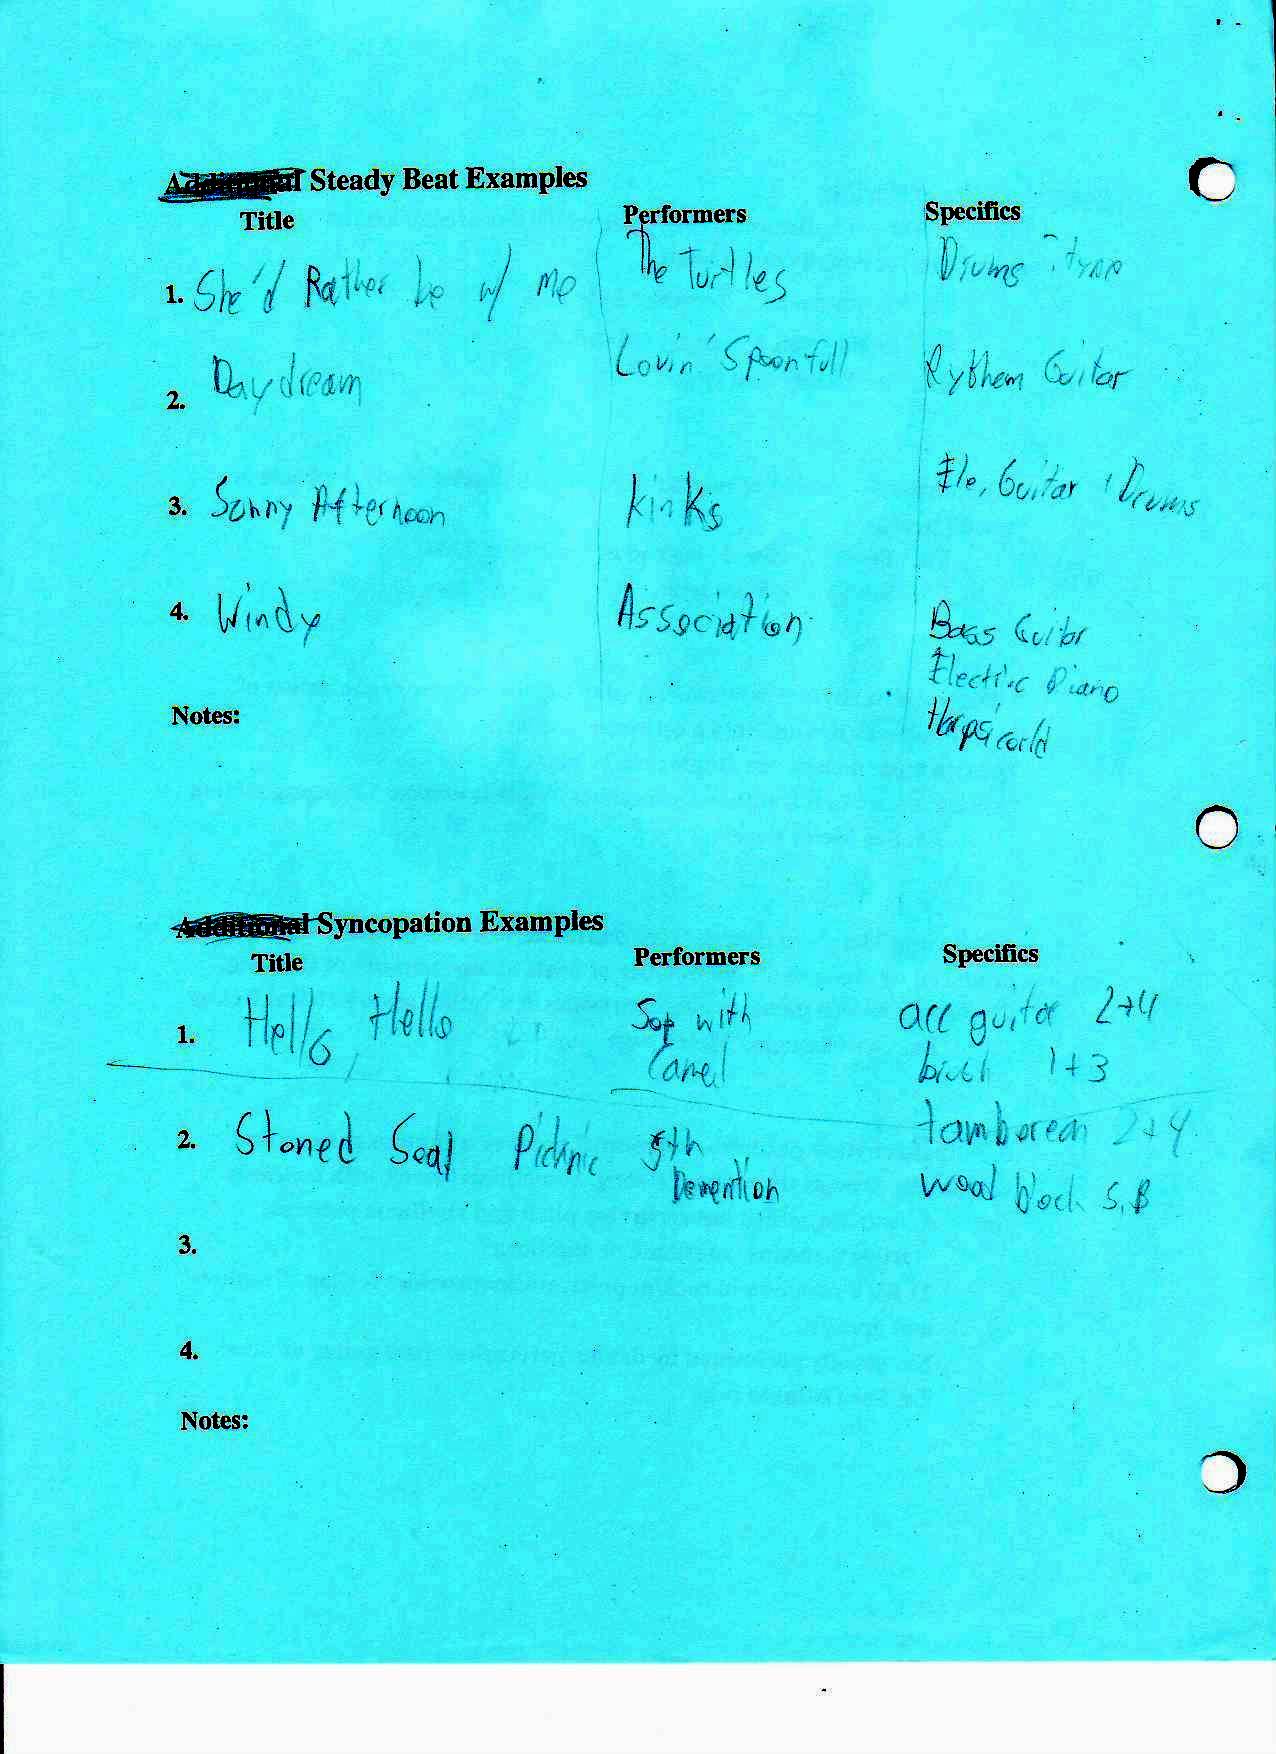 Additional Steady Beat Examples
Title Performers Specifics
1. She'd Rather be w/ me The Turtles Drums
2. Daydream Lovin' Spoonfull Rythem Guitar
3. Sonny Afternoon Kinks Ele. Guitar Drums
4. Windy Association Bass Guitar
Electric Piano
Harpsicorld
Notes:
Additional Syncopation Examples
Title Performers Specifics
1. Hello, Hello Sop with acc guitar 2+4
Camel 1+3
2. Stoned Soal Picknic 5th tamborean 2+4
Demention wood block S.B
3.
4.
Notes: